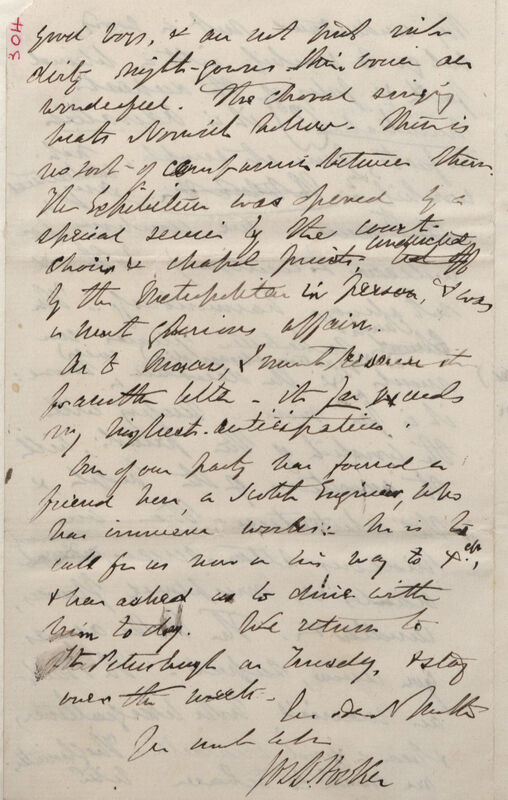 304
good boys, & are not put into
dirty night-gowns their voices are
wonderful. The choral singing
beats Norwich hollow. There is
no sort of comparison between them.
The Exhibition was opened by a
special service by the court
choir & chapel priests, conducted
by the Metropolitan in person, & was
a most glorious affair.
As to Moscow, I must reserve it
for another letter - it far exceeds
my highest anticipations.
One of our party has found a
friend here, a Scotch Engineer, who
has immense works: he is to
call for us now on his way to Ch.,
& has asked us to dine with
him to day. We return to
St Petersburgh on Tuesday, & stay
over the week.
Jos D Hooker